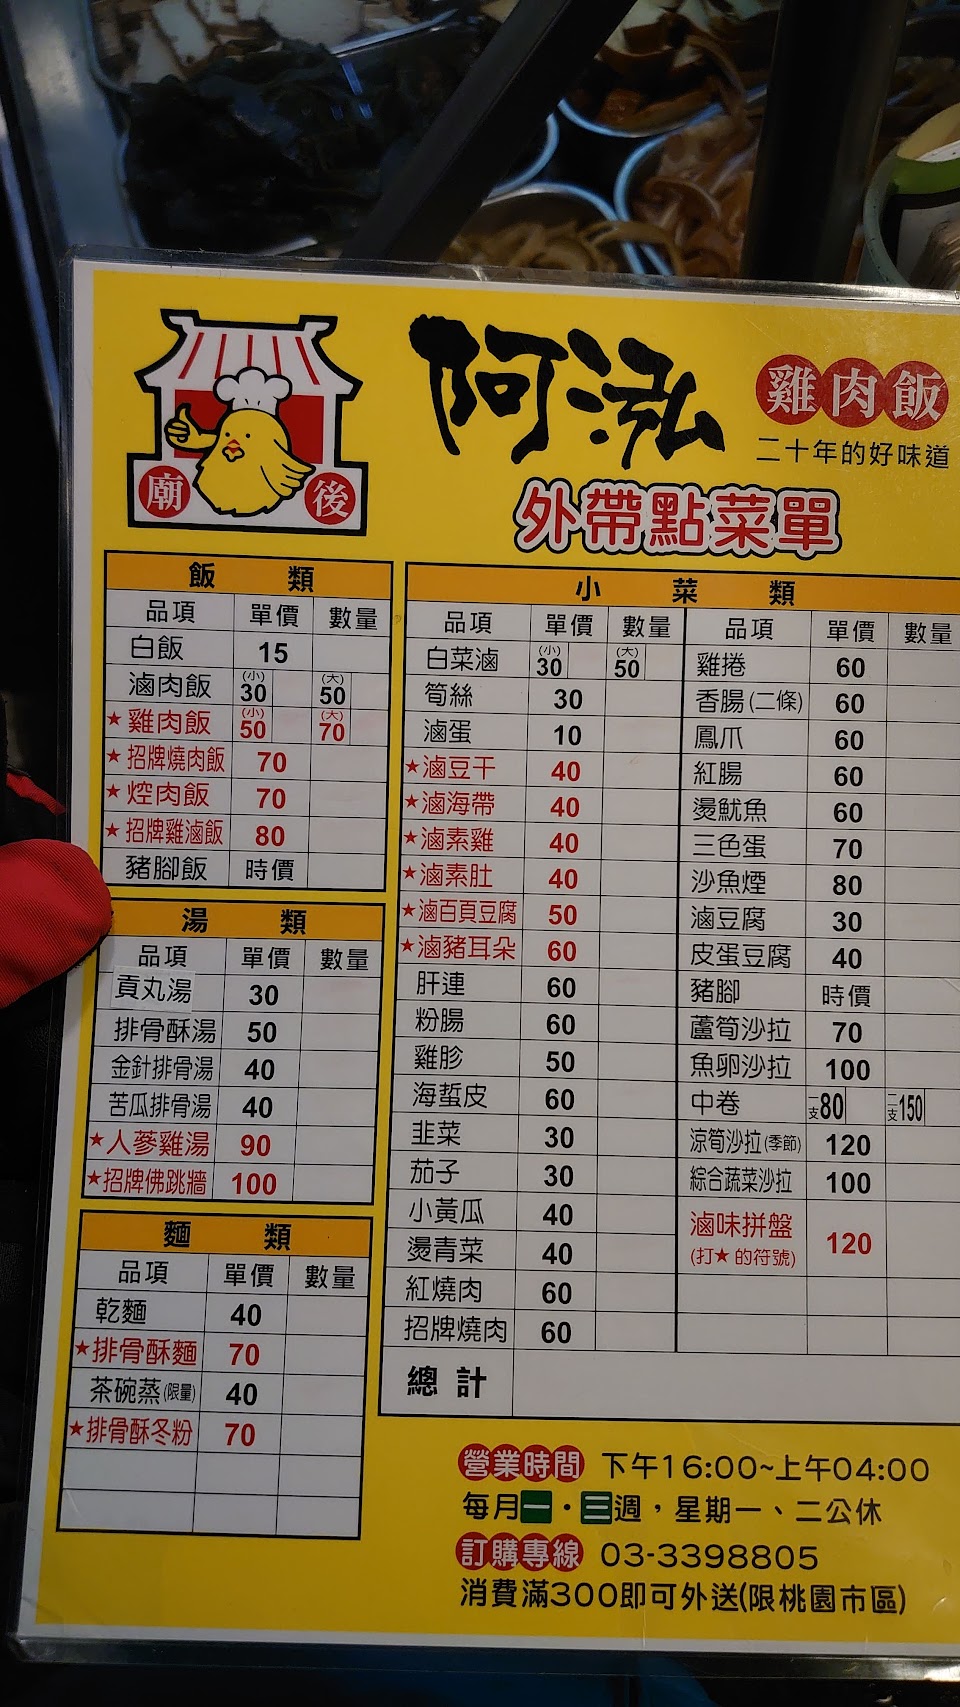 阿泓
雞肉飯
二十年的好味道
廟後
外帶點菜單
飯類
品項 單價 數量
白飯 15
滷肉飯 (小)30 (大)50
★雞肉飯 (小)50 (大)70
★招牌燒肉飯 70
★焢肉飯 70
★招牌雞滷飯 80
豬腳飯 時價
湯類
品項 單價 數量
貢丸湯 30
排骨酥湯 50
金針排骨湯 40
苦瓜排骨湯 40
★人蔘雞湯 90
★招牌佛跳牆 100
麵類
品項 單價 數量
乾麵 40
★排骨酥麵 70
茶碗蒸(限量) 40
★排骨酥冬粉 70
小菜類
品項 單價 數量
白菜滷 (小)30 (大)50
筍絲 30
滷蛋 10
★滷豆干 40
★滷海帶 40
★滷素雞 40
★滷素肚 40
★滷百頁豆腐 50
★滷豬耳朵 60
肝連 60
粉腸 60
雞胗 50
海蜇皮 60
韭菜 30
茄子 30
小黃瓜 40
燙青菜 40
紅燒肉 60
招牌燒肉 60
品項 單價 數量
雞捲 60
香腸(二條) 60
鳳爪 60
紅腸 60
燙魷魚 60
三色蛋 70
沙魚煙 80
滷豆腐 30
皮蛋豆腐 40
豬腳 時價
蘆筍沙拉 70
魚卵沙拉 100
中卷 一支80 二支150
涼筍沙拉(季節) 120
綜合蔬菜沙拉 100
滷味拼盤 120
(打★的符號)
總計
營業時間 下午16:00~上午04:00
每月一・三週，星期一、二公休
訂購專線 03-3398805
消費滿300即可外送(限桃園市區)